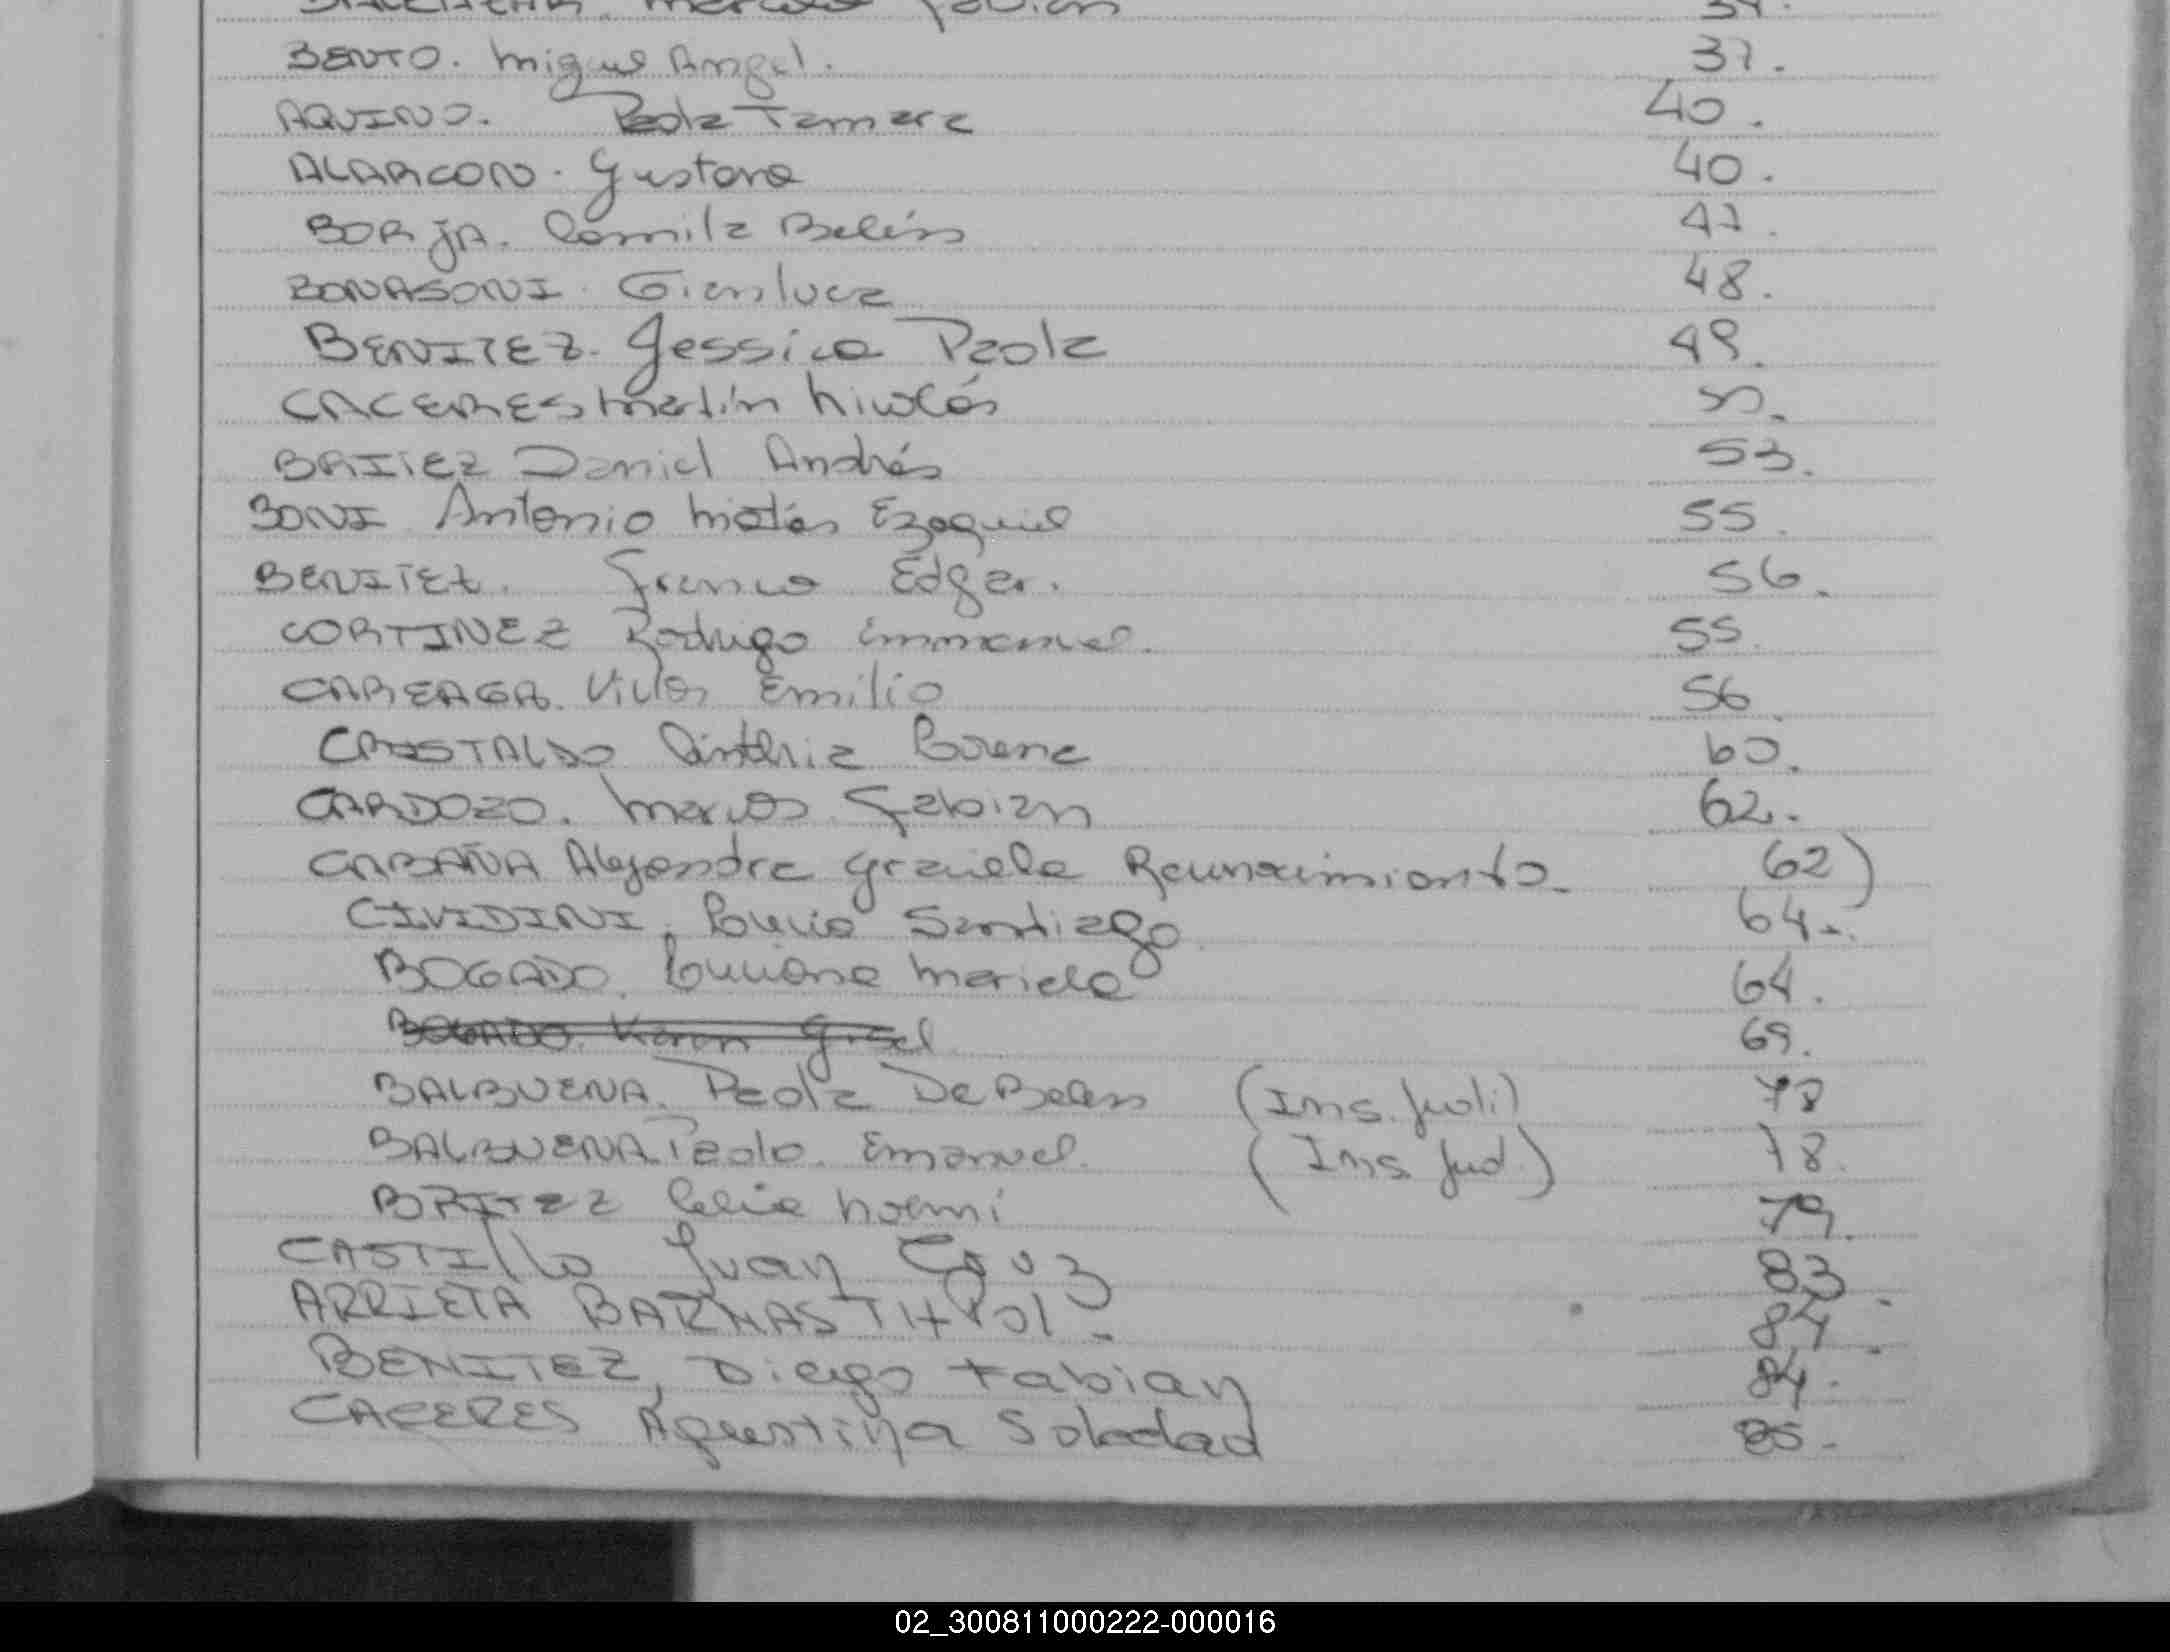 BENTO. Miguel Angel. 37.
AQUINO. Paola Tamara 40.
ALARCON. Gustavo 40.
BORJA. Camila Belén 47.
BONASONI. Gianluca 48.
BENITEZ. Jessica Paola 49.
CACERES Martín Nicolás 50.
BRITEZ Daniel Andrés 53.
BONI Antonio Matías Ezequiel 55.
BENITEZ. Franco Edgar. 56.
CORTINEZ Rodrigo Emmanuel. 55.
CAREAGA. Victor Emilio 56.
CRISTALDO Cinthia Lorena 60.
CARDOZO. Marcos Fabian 62.-
CABAÑA Alejandra Graciela Reconocimiento. 62)
CIVIDINI. Lucio Santiago. 64.-
BOGADO. Luciana Mariela 64.
BOGADO. Karen Gisel 69.
BALBUENA. Paola De Belen (Ins. Judi) 78
BALBUENA Pablo. Emanuel. (Ins Jud.) 78.
BRITEZ Celia Noemi 79.
CASTILLO Juan Cruz 83.
ARRIETA 84.
BENITEZ, Diego Fabian 84.
CACERES Agustina Soledad 85.-
02_300811000222-000016